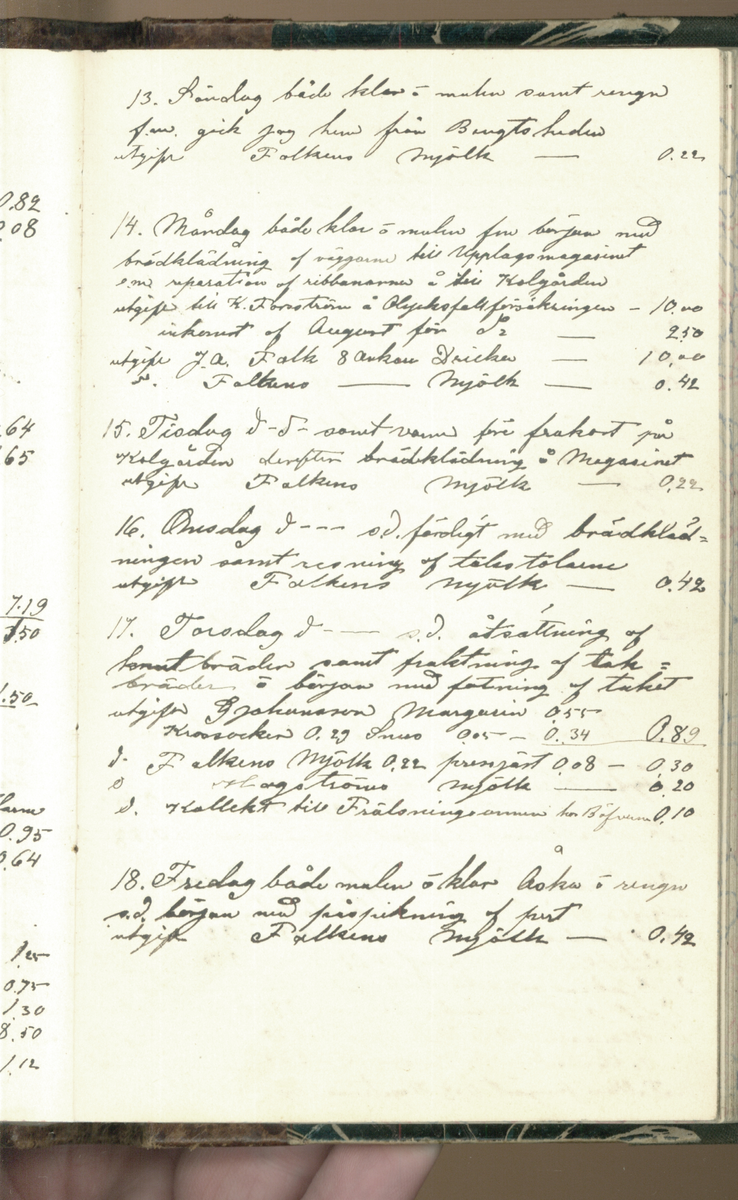 0.82
0.08
64
65
7.19
1.50
1.50
0.95
0.64
1 25
0.75
1.30
8.50
1.12
13. Söndag både klar o mulen samt rengn
f.m. gick jag hem från Bengtsheden
utgift Falkens Mjölk — 0.22
14. Måndag både klar o mulen fm började med
brädklädning af väggarne till Upplagsmagasinet
e.m reparation af ribbanarna å till Kolgården
utgift till K. Forsström å Olycksfallsförsäkringen – 10.00
inkomst af August för — 2.50
utgift J.A. Falk 8 ankare Dricka — 10.00
d. Falkens — Mjölk — 0.42
15. Tisdag d-d- samt varm före frukost på
Kolgården derefter brädklädning å Magasinet
utgift Falkens Mjölk — 0.22
16. Onsdag d--- s.d. färdigt med brädkläd=
ningen samt resning af takstolarne
utgift Falkens Mjölk — 0.42
17. Torsdag d--- s.d. åtsättning af
bräder samt fraktning af tak=
bräder o början med af taket
utgift G Johansson Margarin 0.55
Krossocker 0.29 Snus 0.05 – 0.34 0.89
d- Falkens Mjölk 0.22 pressjäst 0.08 – 0.30
d Hagströms Mjölk — 0.20
d. Kollekt till Frälsningsarmen hos 0.10
18. Fredag både mulen o klar Åska o rengn
s.d. började med påspikning af pert
utgift Falkens Mjölk — 0.42